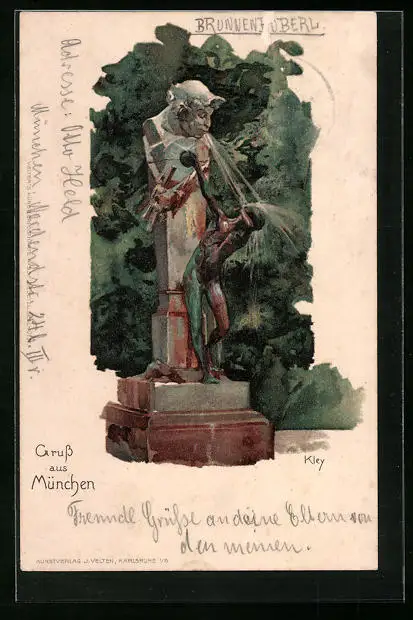 BRUNNENBUBERL.
Adresse: Otto Held
München
Gruß
aus
München
Kley
Freundl Grüße an deine Eltern von
den meinen.
KUNSTVERLAG J. VELTEN, KARLSRUHE